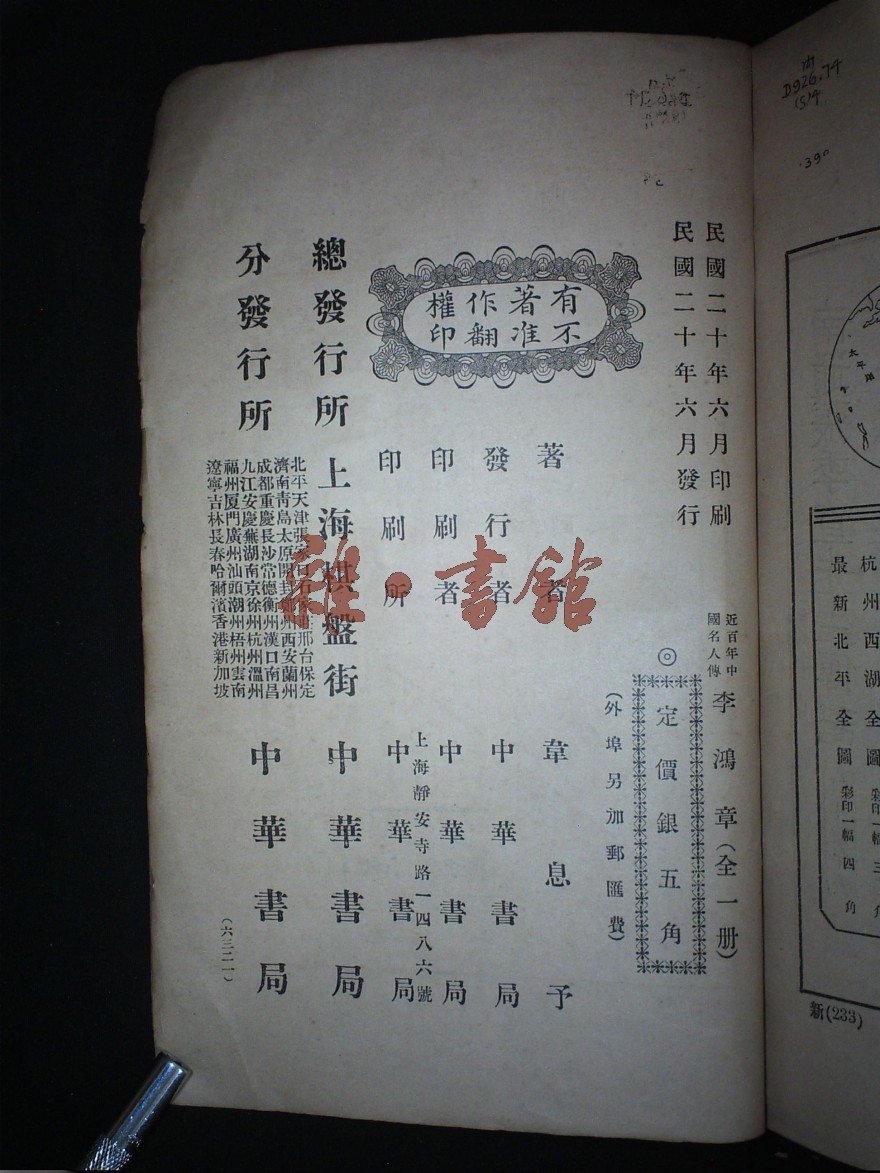 民國二十年六月印刷
民國二十年六月發行
近百年中
國名人傳
李鴻章(全一册)
◎
定價銀五角
(外埠另加郵匯費)
有著作權
不准翻印
著者 韋息予
發行者 中華書局
印刷者 中華書局
上海靜安寺路一四八六號
印刷所 中華書局
總發行所 上海棋盤街 中華書局
分發行所
北平天津張家口石家莊邢台保定
濟南靑島太原開封鄭州西安蘭州
成都重慶長沙常德衡州漢口南昌
九江安慶蕪湖南京徐州杭州溫州
福州厦門廣州汕頭潮州梧州雲南
遼寧吉林長春哈爾濱香港新加坡
中華書局
(六三二一)
雜·書館
D926.74
太平
杭州西湖全圖 彩印一幅 三角
最新北平全圖 彩印一幅 四角
新(233)